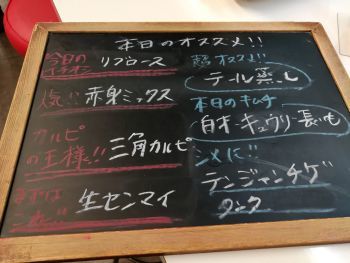 本日のオススメ!!
今日の
イチオシ
リブロース
人気!! 赤身ミックス
カルビ
の王様!! 三角カルビ
まずは
これ!! 生センマイ
超オススメ!!
テール蒸し
本日のキムチ
白木 キュウリ 長いも
〆に!!
テンジャンチゲ